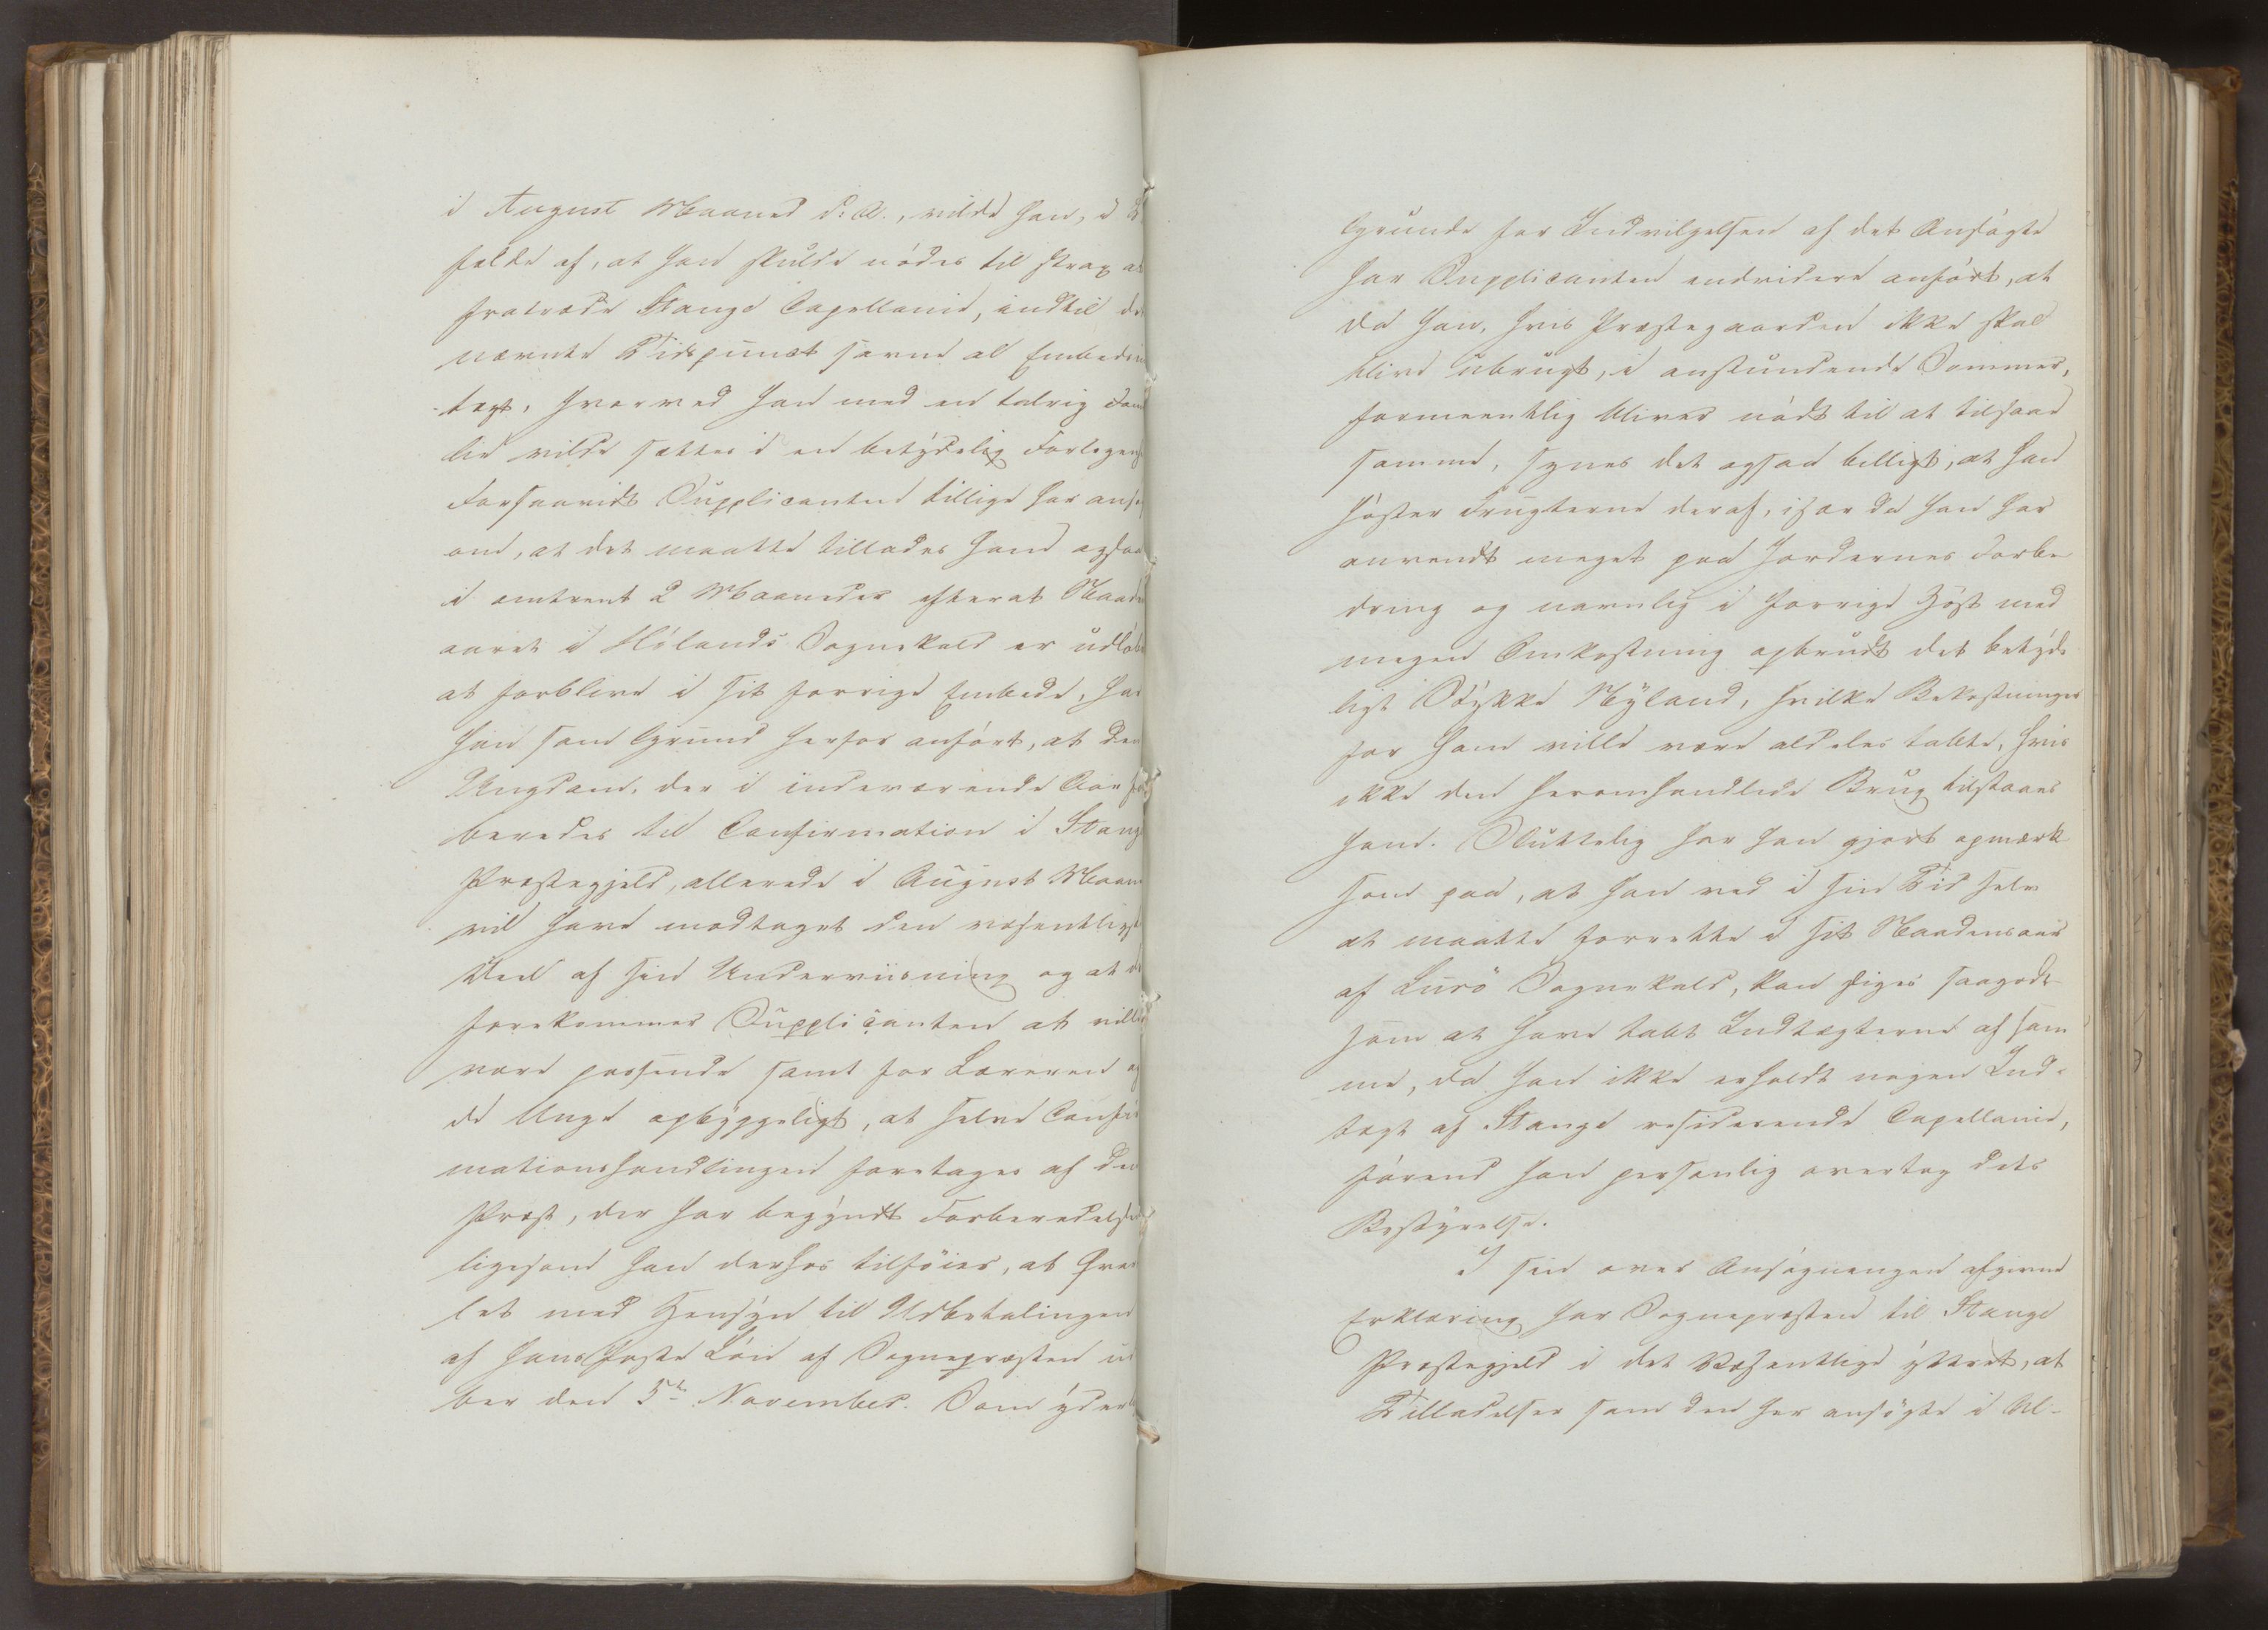 i August Maaned d: A., vilde han, i
falde af, at han skulde nødes til strax at
fratræde Stange Capellanie, indtil det
nævnte Tidspunct savne al Embedsind
-tægt, hvorved han med en talrig Fami
lie vilde sættes i en betydelig Forlegenh
Forsaavidt Supplicanten tillige har ansøgt
om, at det maatte tillades ham ogsaa
i omtrent 2 Maaneder efterat Naade
aaret i Hølands Sognekald er udløbet
at forblive i sit forrige Embede, har
han som Grund herfor anført, at den
Ungdom, der i indeværende Aar for
beredes til Confirmation i Stange
Præstegjeld, allerede i August Maaned
vil have modtaget den væsentligste
Deel af sin Underviisning og at det
forekommer Supplicanten at ville
være passende samt for Læreren og
de Unge opbyggeligt, at selve Confir
mationshandlingen foretages af den
Præst, der har begyndt Forberedelsen
ligesom han derhos tilføier, at Qvar
let med Hensyn til Udbetalingen
af hans faste Løn af Sognepræsten ud
ber den 5te November. Som yderli
Grunde for Indvilgelsen af det Ansøgte
har Supplicanten endvidere anført, at
da han, hvis Præstegaarden ikke skal
blive ubrugt, i anstundende Sommer,
formeentlig bliver nødt til at tilsaae
samme, synes det ogsaa billigt, at han
høster Frugterne deraf, især da han har
anvendt meget paa Jordernes Forbe
dring og navnlig i forrige Høst med
megen Omkostning opbrudt det betyde
ligt Stykke Nyland, hvilke Bekostninger
for ham ville være aldeles tabte, hvis
ikke den heromhandlede Brug tilstaaes
ham. Sluttelig har han gjort opmærk
som paa, at han ved i sin Tid selv
at maatte forrette i sit Naadensaar
af Lurö Sognekald, kan siges saagodt
som at have tabt Indtægterne af sam
me, da han ikke erholdt nogen Ind-
tægt af Stange residerende Capellanie,
førend han personlig overtog dets
Bestyrelse.
I sin over Ansøgningen afgivne
Erklæring har Sognepræsten til Stange
Præstegjeld i det Væsentlige yttret, at
Tilladelser som den her ansøgte i Al-